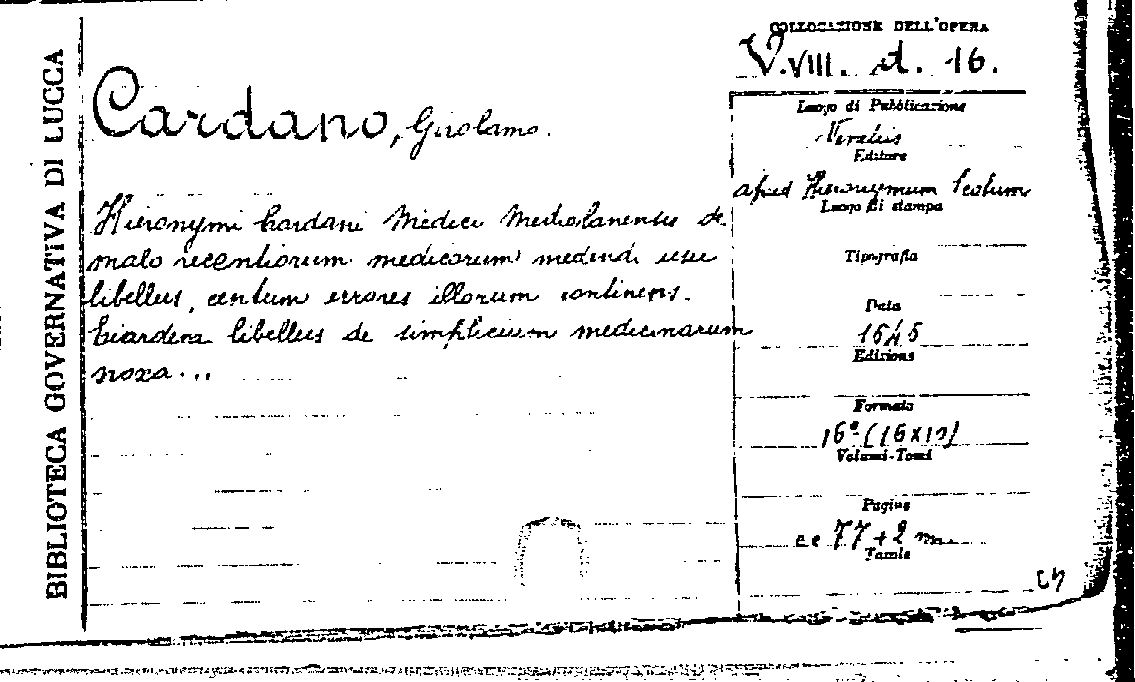 BIBLIOTECA GOVERNATIVA DI LUCCA
COLLOCAZIONE DELL'OPERA
V.VIII. d. 16.
Cardano, Girolamo.
Hieronymi Cardani Medici Mediolanensis de
malo recentiorum medicorum medendi usu
libellus, centum errores illorum continens.
Eiusdem libellus de simplicium medicinarum
noxa...
Luogo di Pubblicazione
Venetiis
Editore
apud Hieronymum Scotum
Luogo di stampa
Tipografia
Data
1545
Edizione
Formato
16º (16x10)
Volumi-Tomi
Pagine
cc 77 + 2 m
Tavole